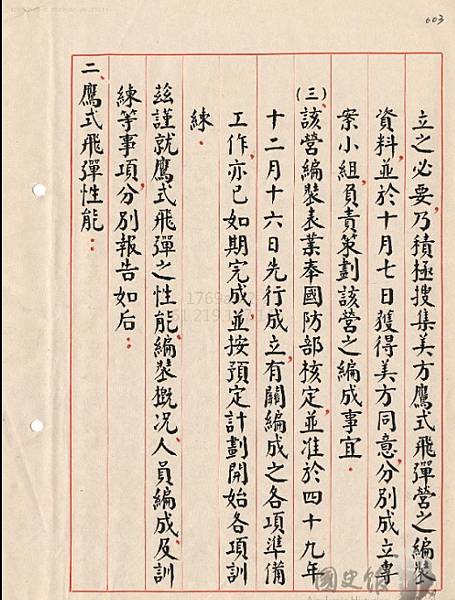 603
立之必要,乃積極搜集美方鷹式飛彈營之編裝
資料,並於十月七日獲得美方同意,分別成立專
案小組,負責策劃該營之編成事宜.
(三)該營編裝表業奉國防部核定,並准於四十九年
十二月十六日先行成立,有關編成之各項準備
工作,亦已如期完成,並按預定計劃開始各項訓
練.
茲謹就鷹式飛彈之性能、編裝概況、人員編成、及訓
練等事項,分別報告如后:
二、鷹式飛彈性能:
國史館